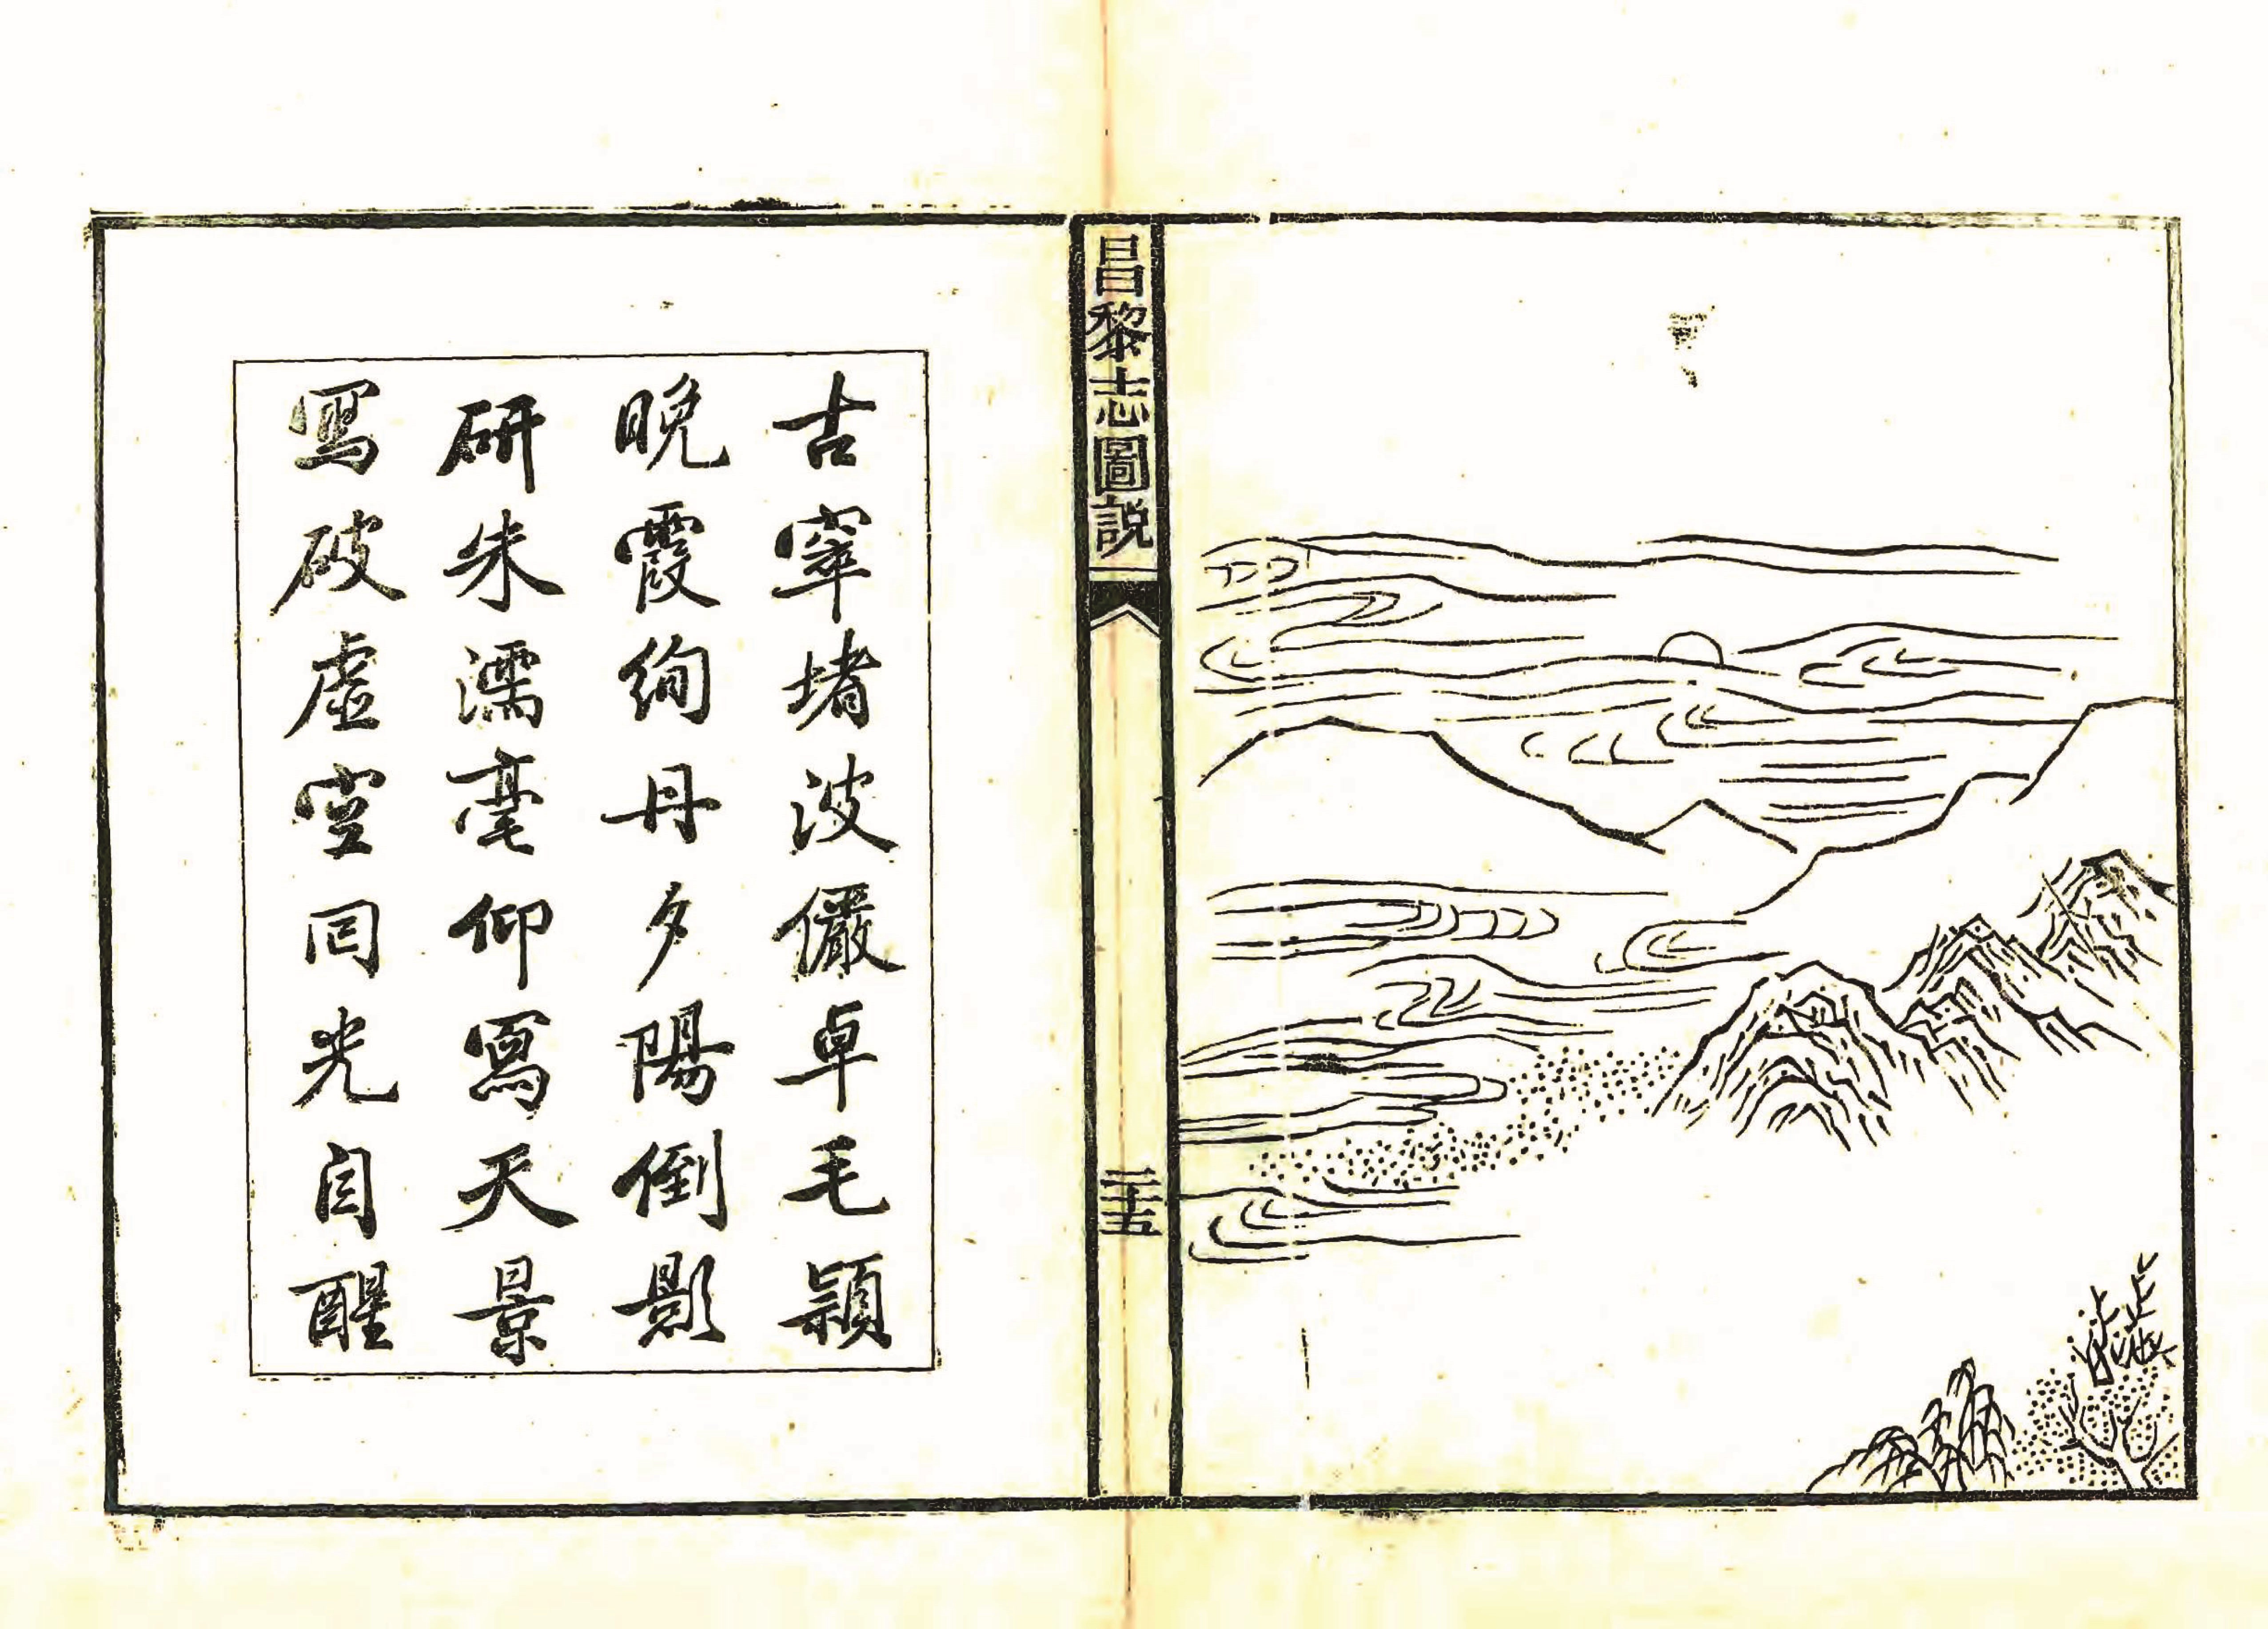 昌黎志圖説
二十五
古窣堵波儼卓毛穎
晚霞絢丹夕陽倒影
研朱濡毫仰寫天景
寫破虛空回光自醒